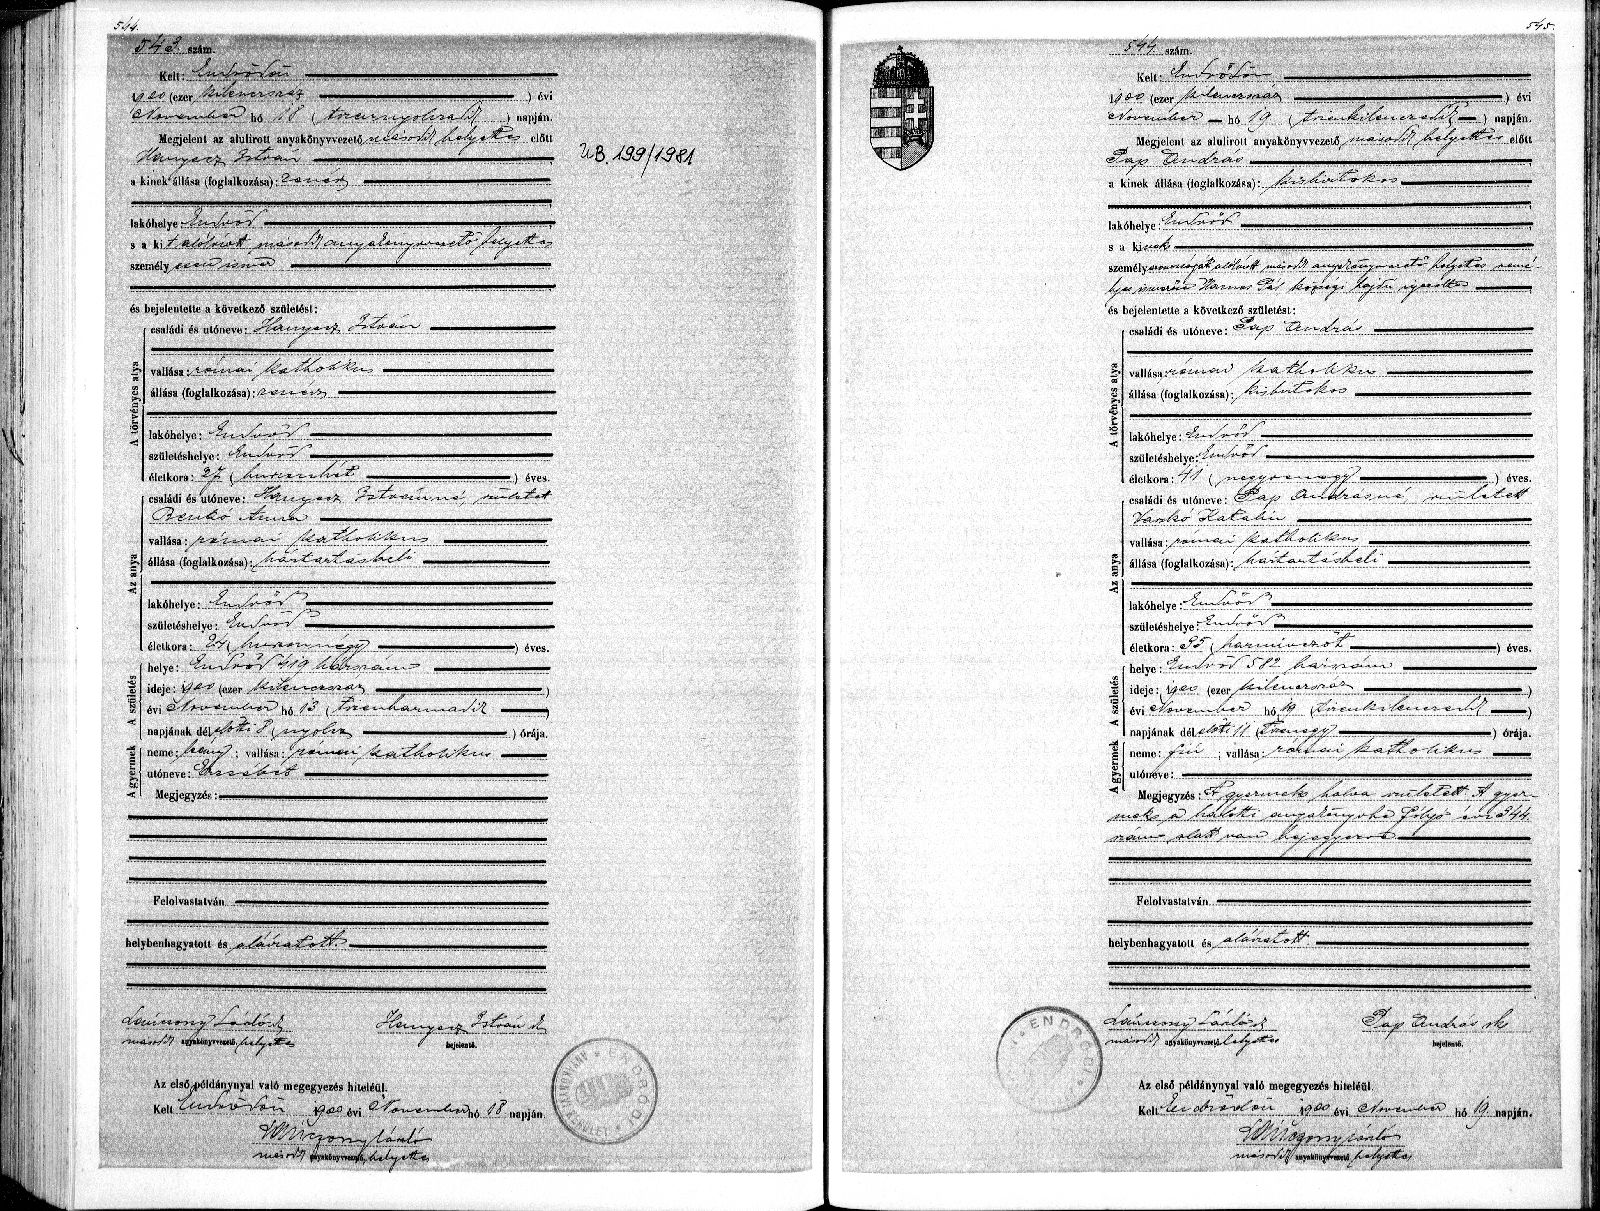 544.
543. szám.
Kelt: Endrődön
1900 (ezer kilenczszáz ) évi
November hó 18 ( tizennyolczadik ) napján.
Megjelent az alulirott anyakönyvvezető másodh. helyettes előtt
Hanyecz István
a kinek állása (foglalkozása):
lakóhelye Endrőd
s a kit alólirott másodh. anyakönyvvezető helyettes
személyesen ismer
és bejelentette a következő születést:
A törvényes atya
családi és utóneve: Hanyecz István
vallása: római katholikus
állása (foglalkozása):
lakóhelye: Endrőd
születéshelye: Endrőd
életkora: 27 ( huszonhét ) éves.
Az anya
családi és utóneve: Hanyecz Istvánné, született
Benkó Anna
vallása: római katholikus
állása (foglalkozása): háztartásbeli
lakóhelye: Endrőd
születéshelye: Endrőd
életkora: 24 ( huszonnégy ) éves.
A születés
helye: Endrőd 419 házszám
ideje: 1900 (ezer kilenczszáz )
évi November hó 13 ( tizenharmadik )
napjának délelőtti 8 ( nyolcz ) órája.
A gyermek
neme: leány; vallása: római katholikus
utóneve: Erzsébet
Megjegyzés:
Felolvastatván
helybenhagyatott és aláiratott.
László
Hanyecz István
másodh. anyakönyvvezető helyettes
bejelentő.
Az első példánynyal való megegyezés hiteléül.
Kelt Endrődön 1900 évi November hó 18 napján.
László
másodh. anyakönyvvezető helyettes
UB. 199/1981
ENDRŐDI
545.
544. szám.
Kelt: Endrődön
1900 (ezer kilenczszáz ) évi
November hó 19 ( tizenkilenczedik ) napján.
Megjelent az alulirott anyakönyvvezető másodh. helyettes előtt
Pap András
a kinek állása (foglalkozása): kisbirtokos
lakóhelye: Endrőd
s a kinek
személyazonosságát alólirott másodh. anyakönyvvezető helyettes szemé-
lyes ismerőse Pál községi hajdu igazolta
és bejelentette a következő születést:
A törvényes atya
családi és utóneve: Pap András
vallása: római katholikus
állása (foglalkozása): kisbirtokos
lakóhelye: Endrőd
születéshelye: Endrőd
életkora: 41 ( negyvenegy ) éves.
Az anya
családi és utóneve: Pap Andrásné, született
Vaskó Katalin
vallása: római katholikus
állása (foglalkozása): háztartásbeli
lakóhelye: Endrőd
születéshelye: Endrőd
életkora: 35 ( harminczöt ) éves.
A születés
helye: Endrőd 582 házszám
ideje: 1900 (ezer kilenczszáz )
évi November hó 19 ( tizenkilenczedik )
napjának délelőtti 11 ( tizenegy ) órája.
A gyermek
neme: fiú; vallása: római katholikus
utóneve:
Megjegyzés: A gyermek halva született. A gyer-
mek a halotti anyakönyvbe folyó évi 344.
szám alatt van bejegyezve
Felolvastatván
helybenhagyatott és aláiratott
László
Pap András sk
másodh. anyakönyvvezető helyettes
bejelentő.
Az első példánynyal való megegyezés hiteléül.
Kelt Endrődön 1900 évi November hó 19 napján.
László
másodh. anyakönyvvezető helyettes
ENDRŐDI